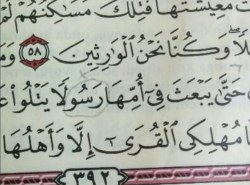 مَعِيشَتَهَا فَتِلْكَ مَسَاكِنُهُمْ لَمْ
وَكُنَّا نَحْنُ الْوَارِثِينَ ٥٨
حَتَّى يَبْعَثَ فِي أُمِّهَا رَسُولًا يَتْلُوا
مُهْلِكِي الْقُرَى إِلَّا وَأَهْلُهَا
٣٩٢